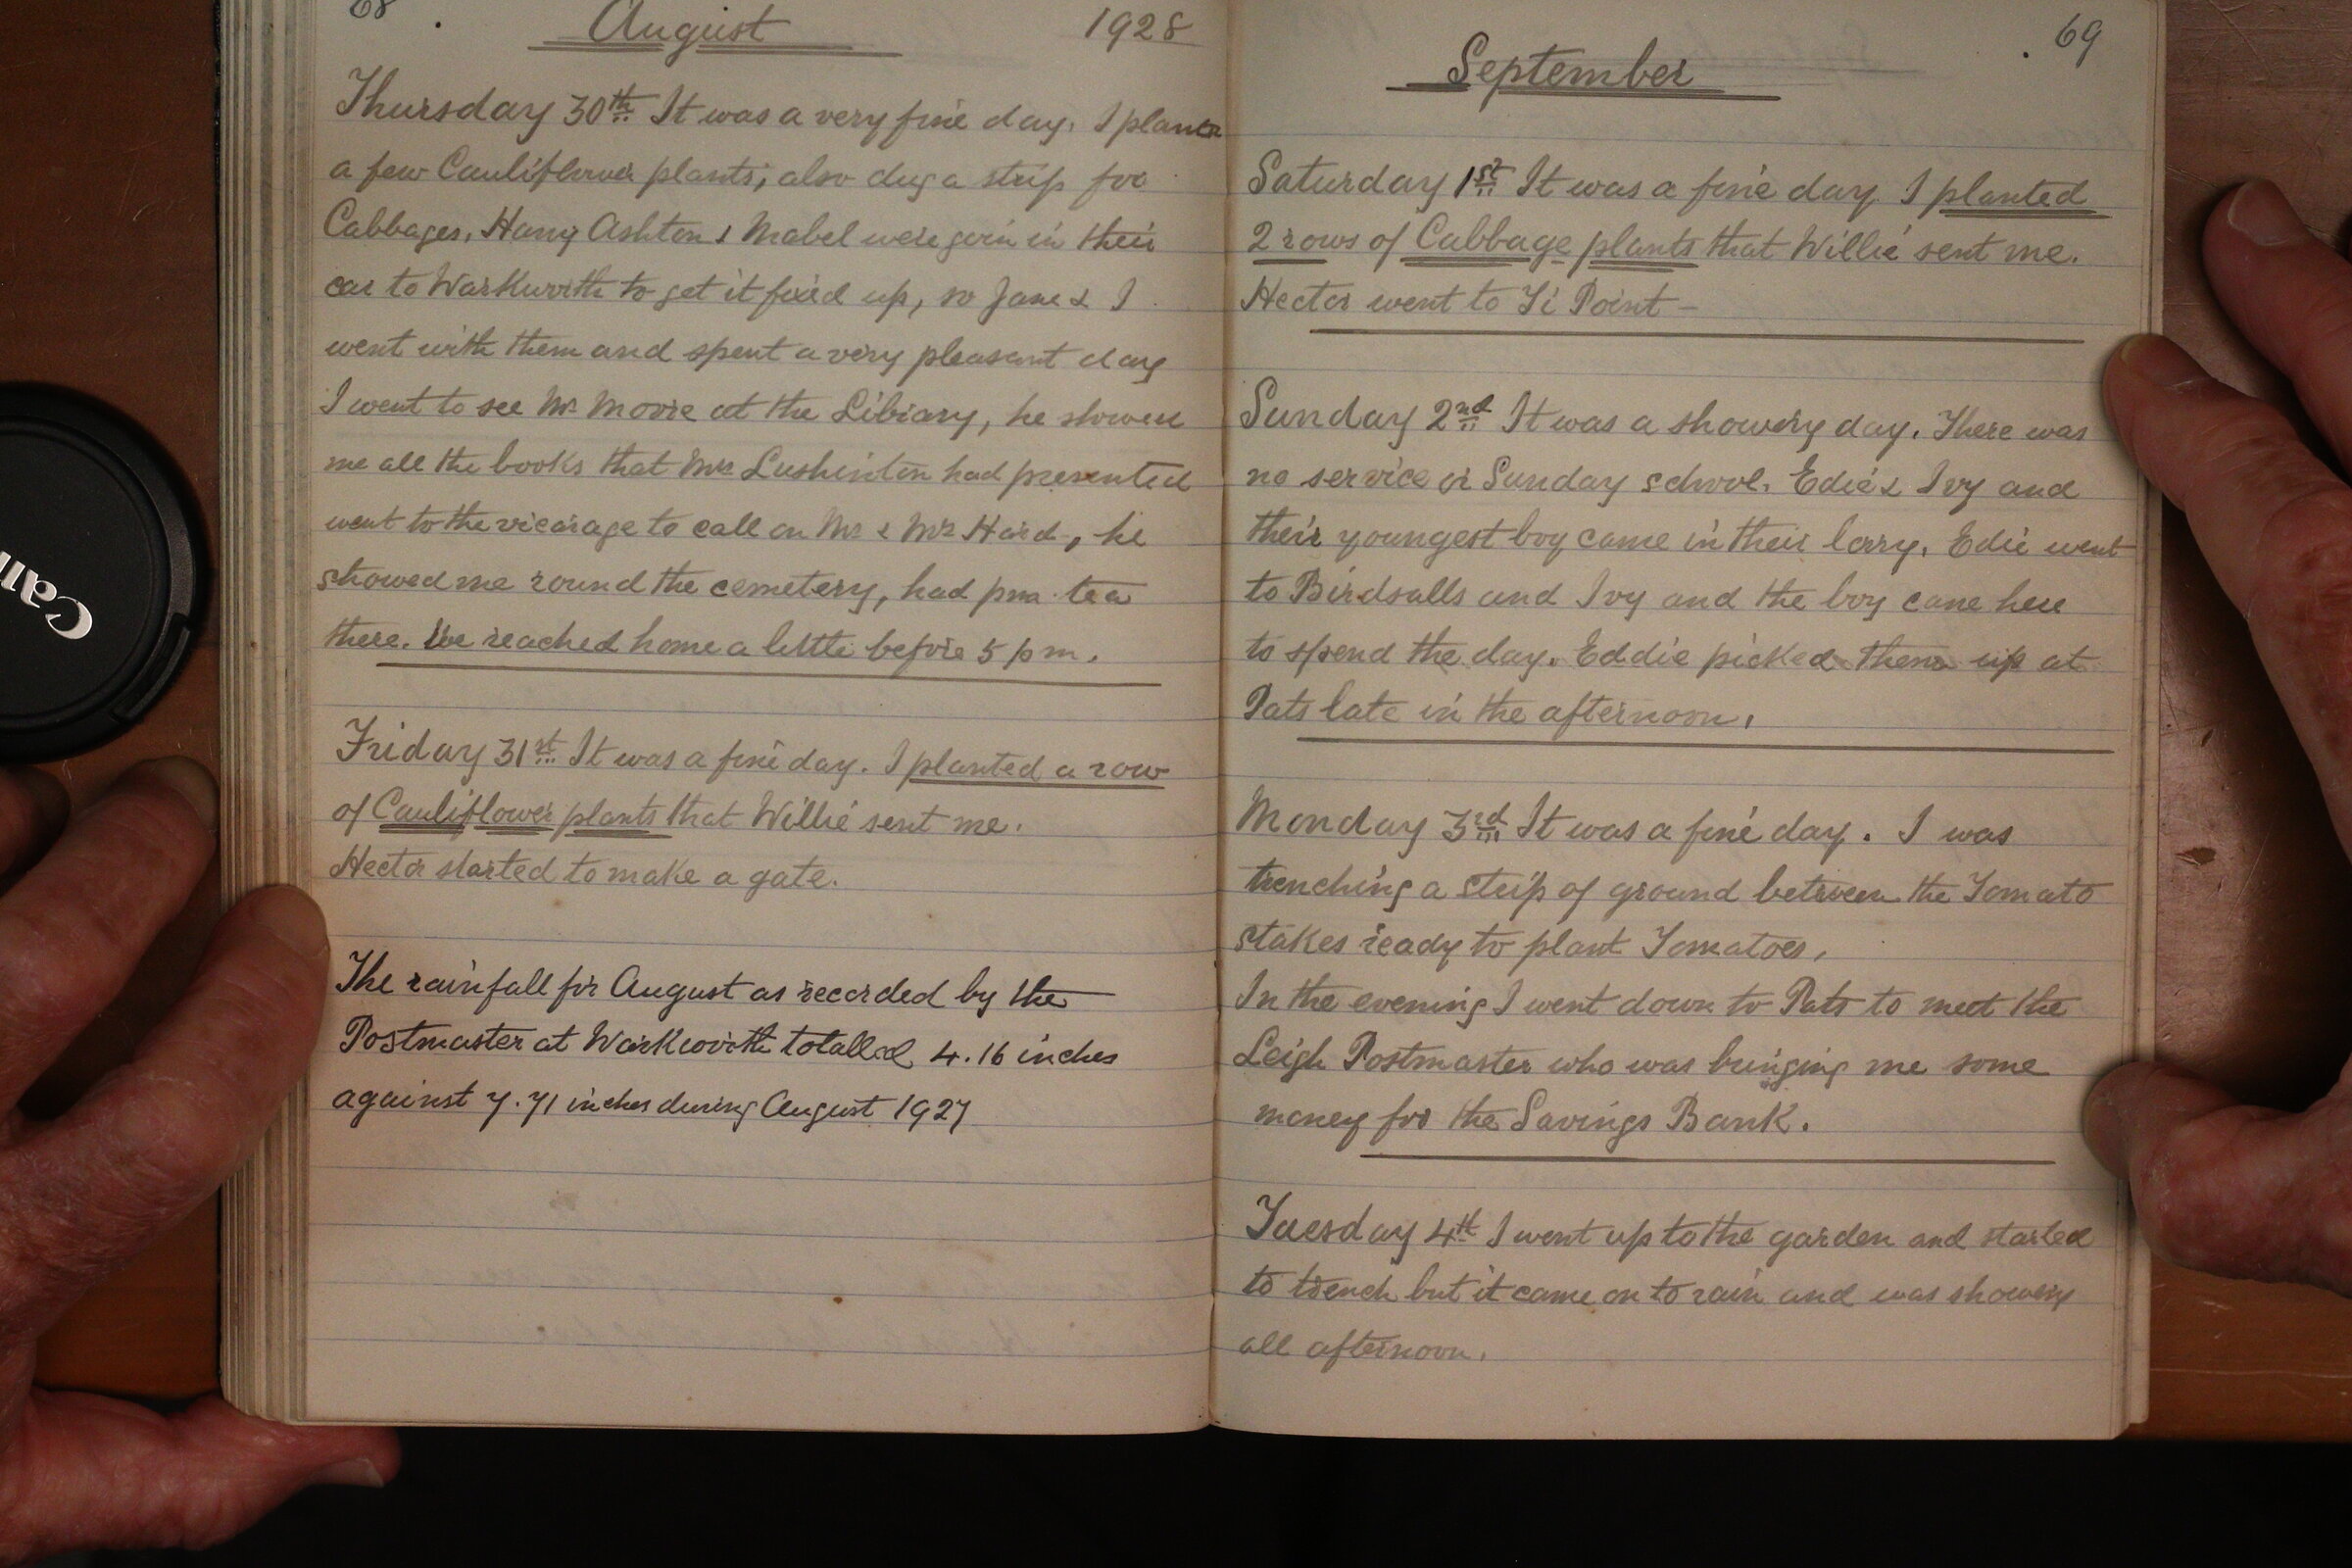 68
August 1928
Thursday 30th It was a very fine day. I planted
a few Cauliflower plants, also dug a strip for
Cabbages. Harry Ashton & Mabel were goin in their
car to Warkworth to get it fixed up, so Jane & I
went with them and spent a very pleasant day
I went to see Mr Movie at the Library, he showed
me all the books that Mrs Lushinton had presented
went to the vicarage to call on Mr & Mrs Hard, he
showed me round the cemetery, had pm tea
there. We reached home a little before 5 pm.
Friday 31st It was a fine day. I planted a row
of Cauliflower plants that Willie sent me.
Hector started to make a gate.
The rainfall for August as recorded by the
Postmaster at Warkworth totalled 4.16 inches
against 7.71 inches during August 1927
69
September
Saturday 1st It was a fine day. I planted
2 rows of Cabbage plants that Willie sent me.
Hector went to Ti Point -
Sunday 2nd It was a showery day. There was
no service or Sunday school. Edie & Ivy and
their youngest boy came in their lorry. Edie went
to Birdsalls and Ivy and the boy cane here
to spend the day. Eddie picked them up at
Pats late in the afternoon.
Monday 3rd It was a fine day. I was
trenching a strip of ground between the Tomato
stakes ready to plant Tomatoes,
In the evening I went down to Pats to meet the
Leigh Postmaster who was bringing me some
money for the Savings Bank.
Tuesday 4th I went up to the garden and started
to trench but it came on to rain and was showery
all afternoon.
Can